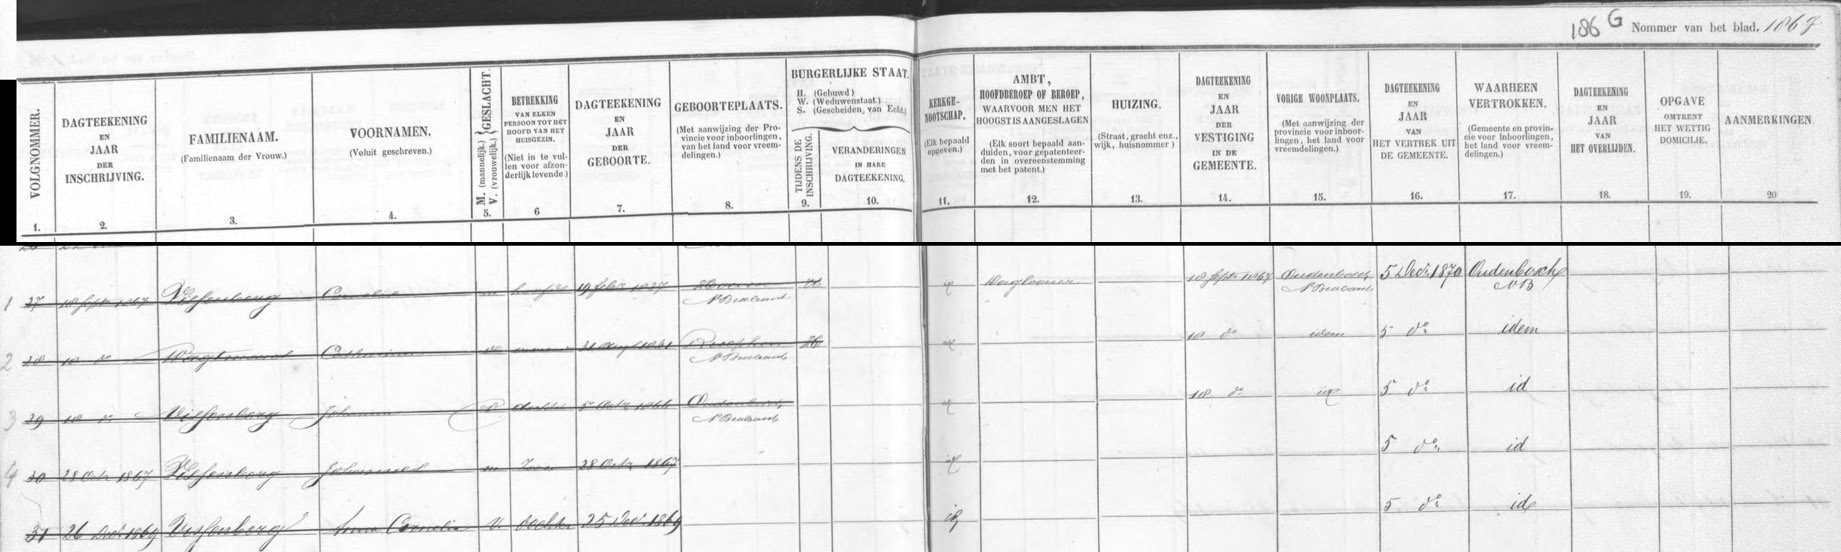 186 G Nommer van het blad. 1867
VOLGNOMMER.
1.
DAGTEEKENING
EN
JAAR
DER
INSCHRIJVING.
2.
FAMILIENAAM.
(Familienaam der Vrouw.)
3.
VOORNAMEN.
(Voluit geschreven.)
4.
M. (mannelijk.) V. (vrouwelijk.) } GESLACHT.
5.
BETREKKING
VAN ELKEN
PERSOON TOT HET
HOOFD VAN HET
HUISGEZIN.
(Niet in te vul-
len voor afzon-
derlijk levende.)
6
DAGTEEKENING
EN
JAAR
DER
GEBOORTE.
7.
GEBOORTEPLAATS.
(Met aanwijzing der Pro-
vincie voor inboorlingen,
van het land voor vreem-
delingen.)
8.
BURGERLIJKE STAAT.
H. (Gehuwd)
W. (Weduwenstaat.)
S. (Gescheiden, van Echt.)
TIJDENS DE
INSCHRIJVING.
9.
VERANDERINGEN
IN HARE
DAGTEEKENING.
10.
KERKGE-
NOOTSCHAP.
(Elk bepaald
opgeven.)
11.
AMBT,
HOOFDBEROEP OF BEROEP,
WAARVOOR MEN HET
HOOGST IS AANGESLAGEN
(Elk soort bepaald aan-
duiden, voor gepatenteer-
den in overeenstemming
met het patent.)
12.
HUIZING.
(Straat, gracht enz.,
wijk, huisnommer)
13.
DAGTEEKENING
EN
JAAR
DER
VESTIGING
IN DE
GEMEENTE.
14.
VORIGE WOONPLAATS.
(Met aanwijzing der
provincie voor inboor-
lingen, het land voor
vreemdelingen.)
15.
DAGTEEKENING
EN
JAAR
VAN
HET VERTREK UIT
DE GEMEENTE.
16.
WAARHEEN
VERTROKKEN.
(Gemeente en provin-
cie voor Inboorlingen,
het land voor vreem-
delingen.)
17.
DAGTEEKENING
EN
JAAR
VAN
HET OVERLIJDEN.
18.
OPGAVE
OMTRENT
HET WETTIG
DOMICILIE.
19.
AANMERKINGEN
20
1 27 18 Sept 1867 Cornelis m hoofd 19 febr 1837 N Braband 18 Sept 1867 Oudenbosch N Braband 5 Dec. 1870 Oudenbosch NB
2 28 18 do Catharina N Braband 18 do idem 5 do idem
3 29 18 do Johanna V dochter 5 Oct 1866 Oudenbosch N Braband 18 do id 5 do id
4 30 28 Oct 1867 Johannes m Zoon 28 Oct 1867 5 do id
31 26 Dec 1869 Anna Cornelia V dochter 25 Dec 1869 5 do id